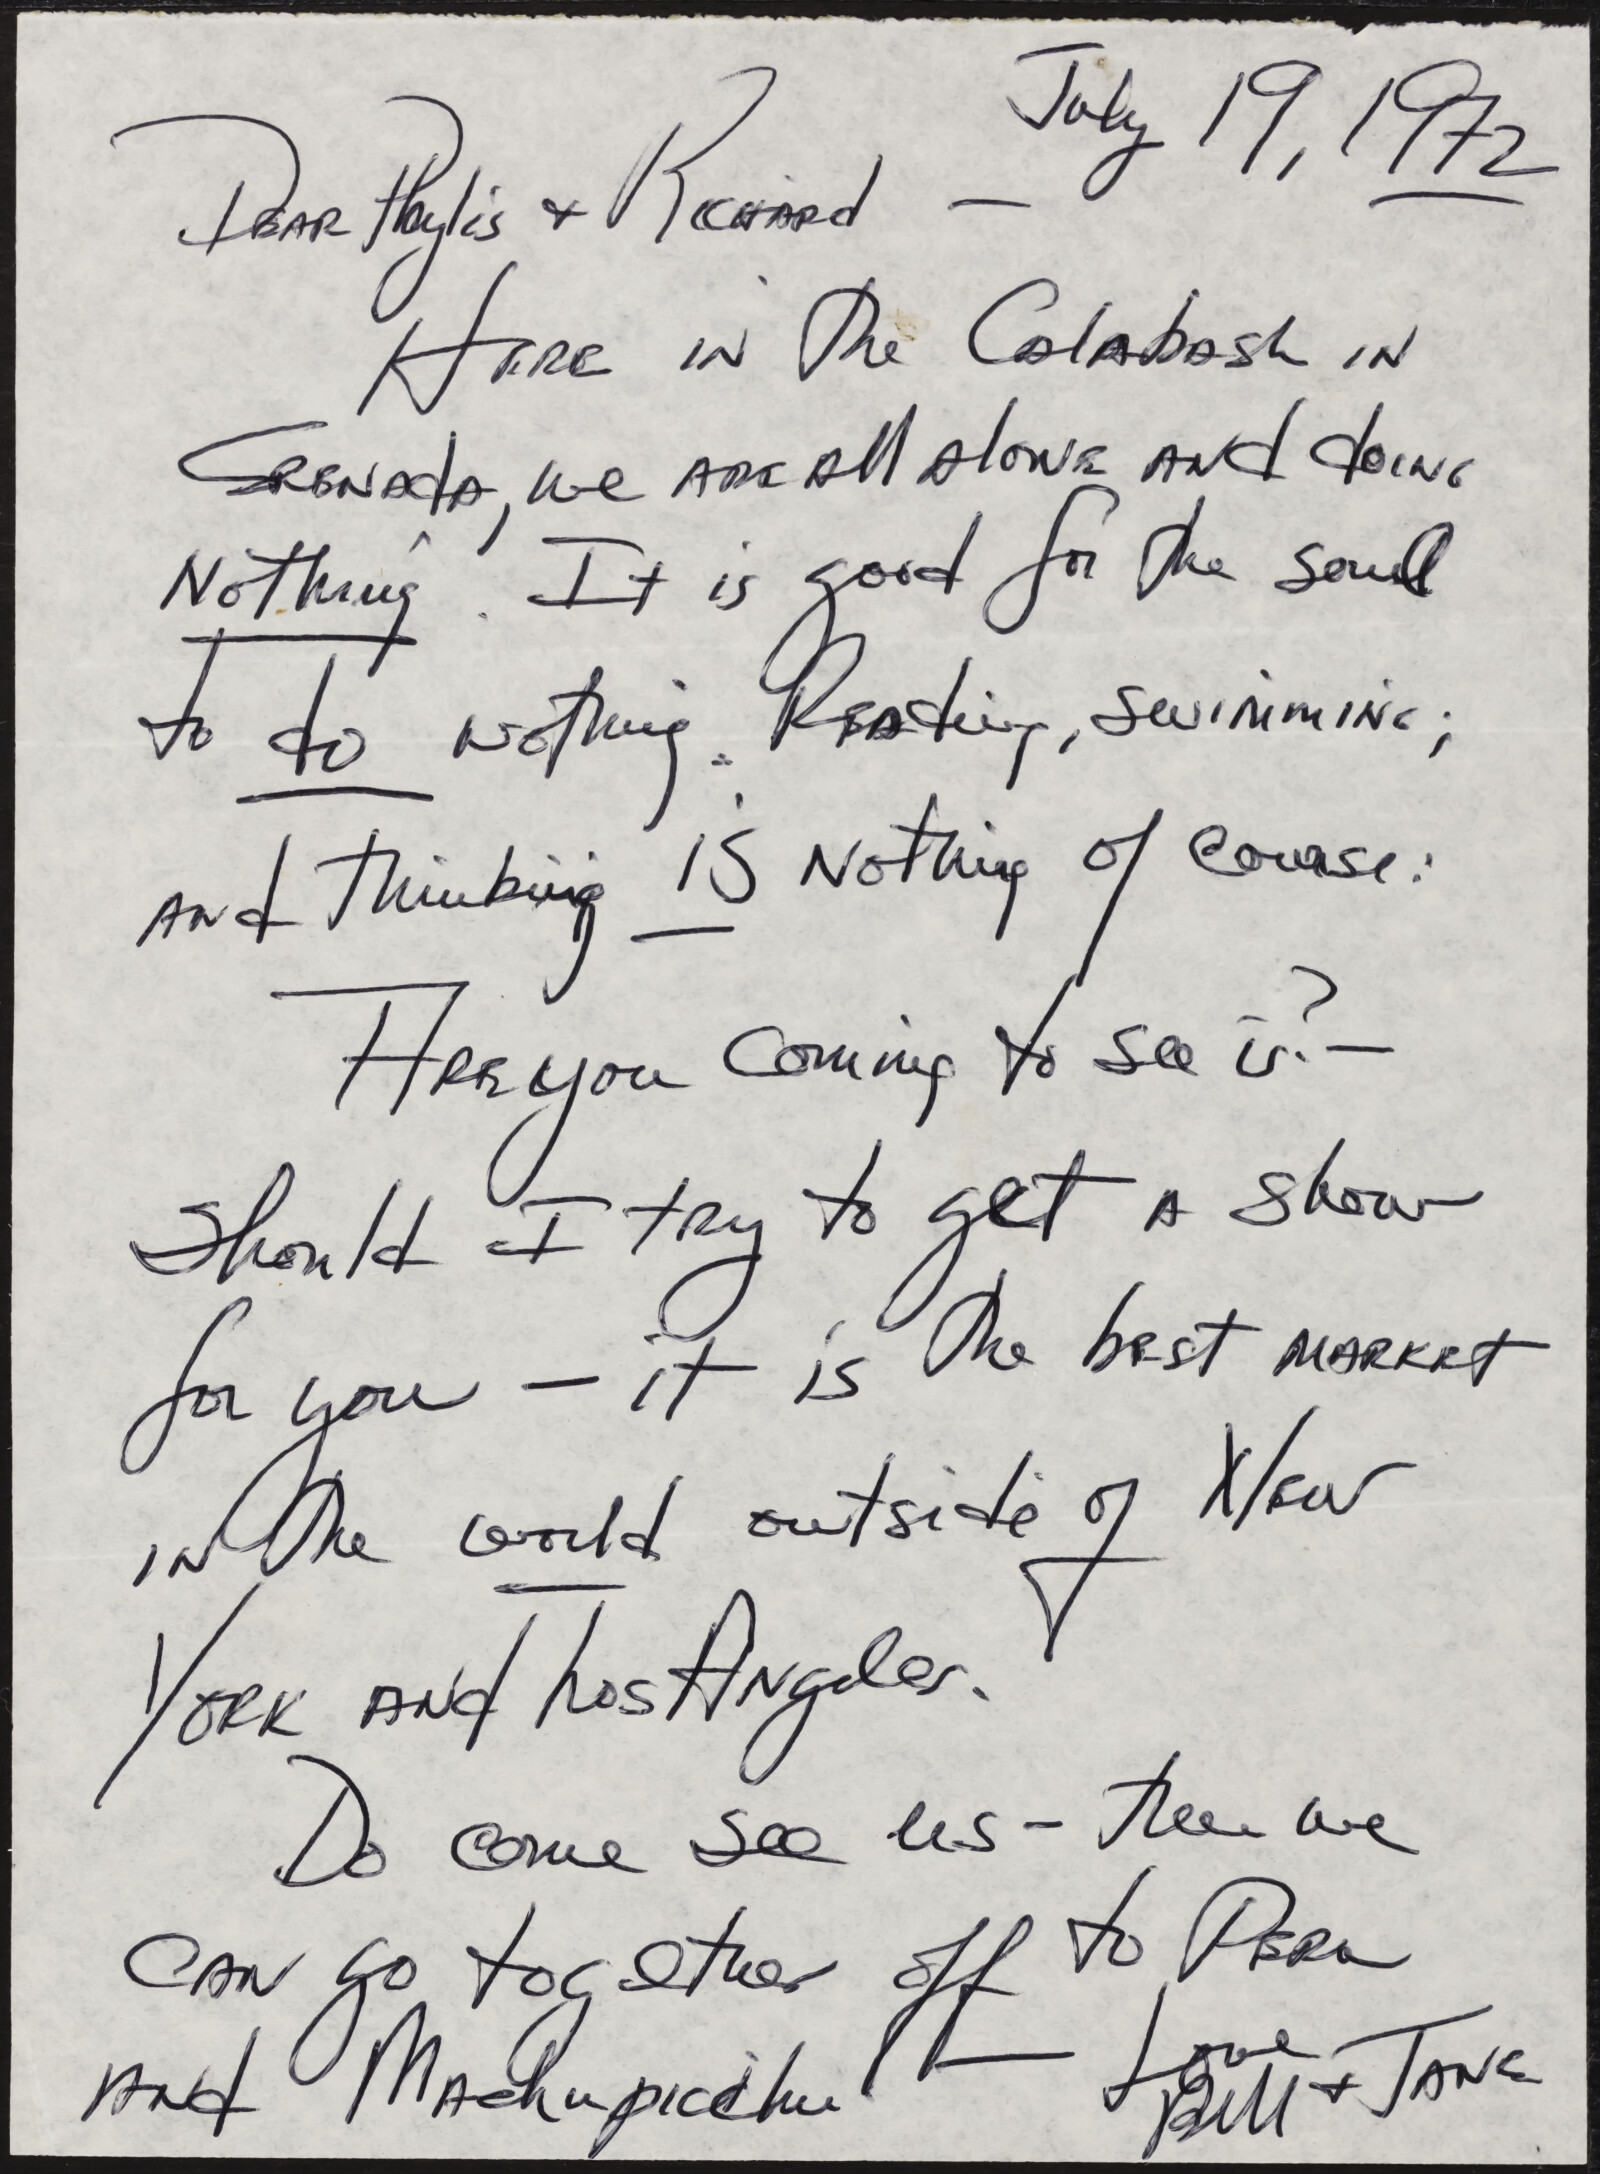 July 19, 1972
Dear Phylis + Richard —
Here in the Calabash in
Grenada, we are all alone and doing
Nothing. It is good for the soul
to do nothing. Reading, swimming;
and thinking is nothing of course:
Are you coming to see us? —
Should I try to get a show
for you — it is the best market
in the world outside of New
York and Los Angeles.
Do come see us - then we
can go together off to Peru
and Machupicchu — Love
Bill + Jane